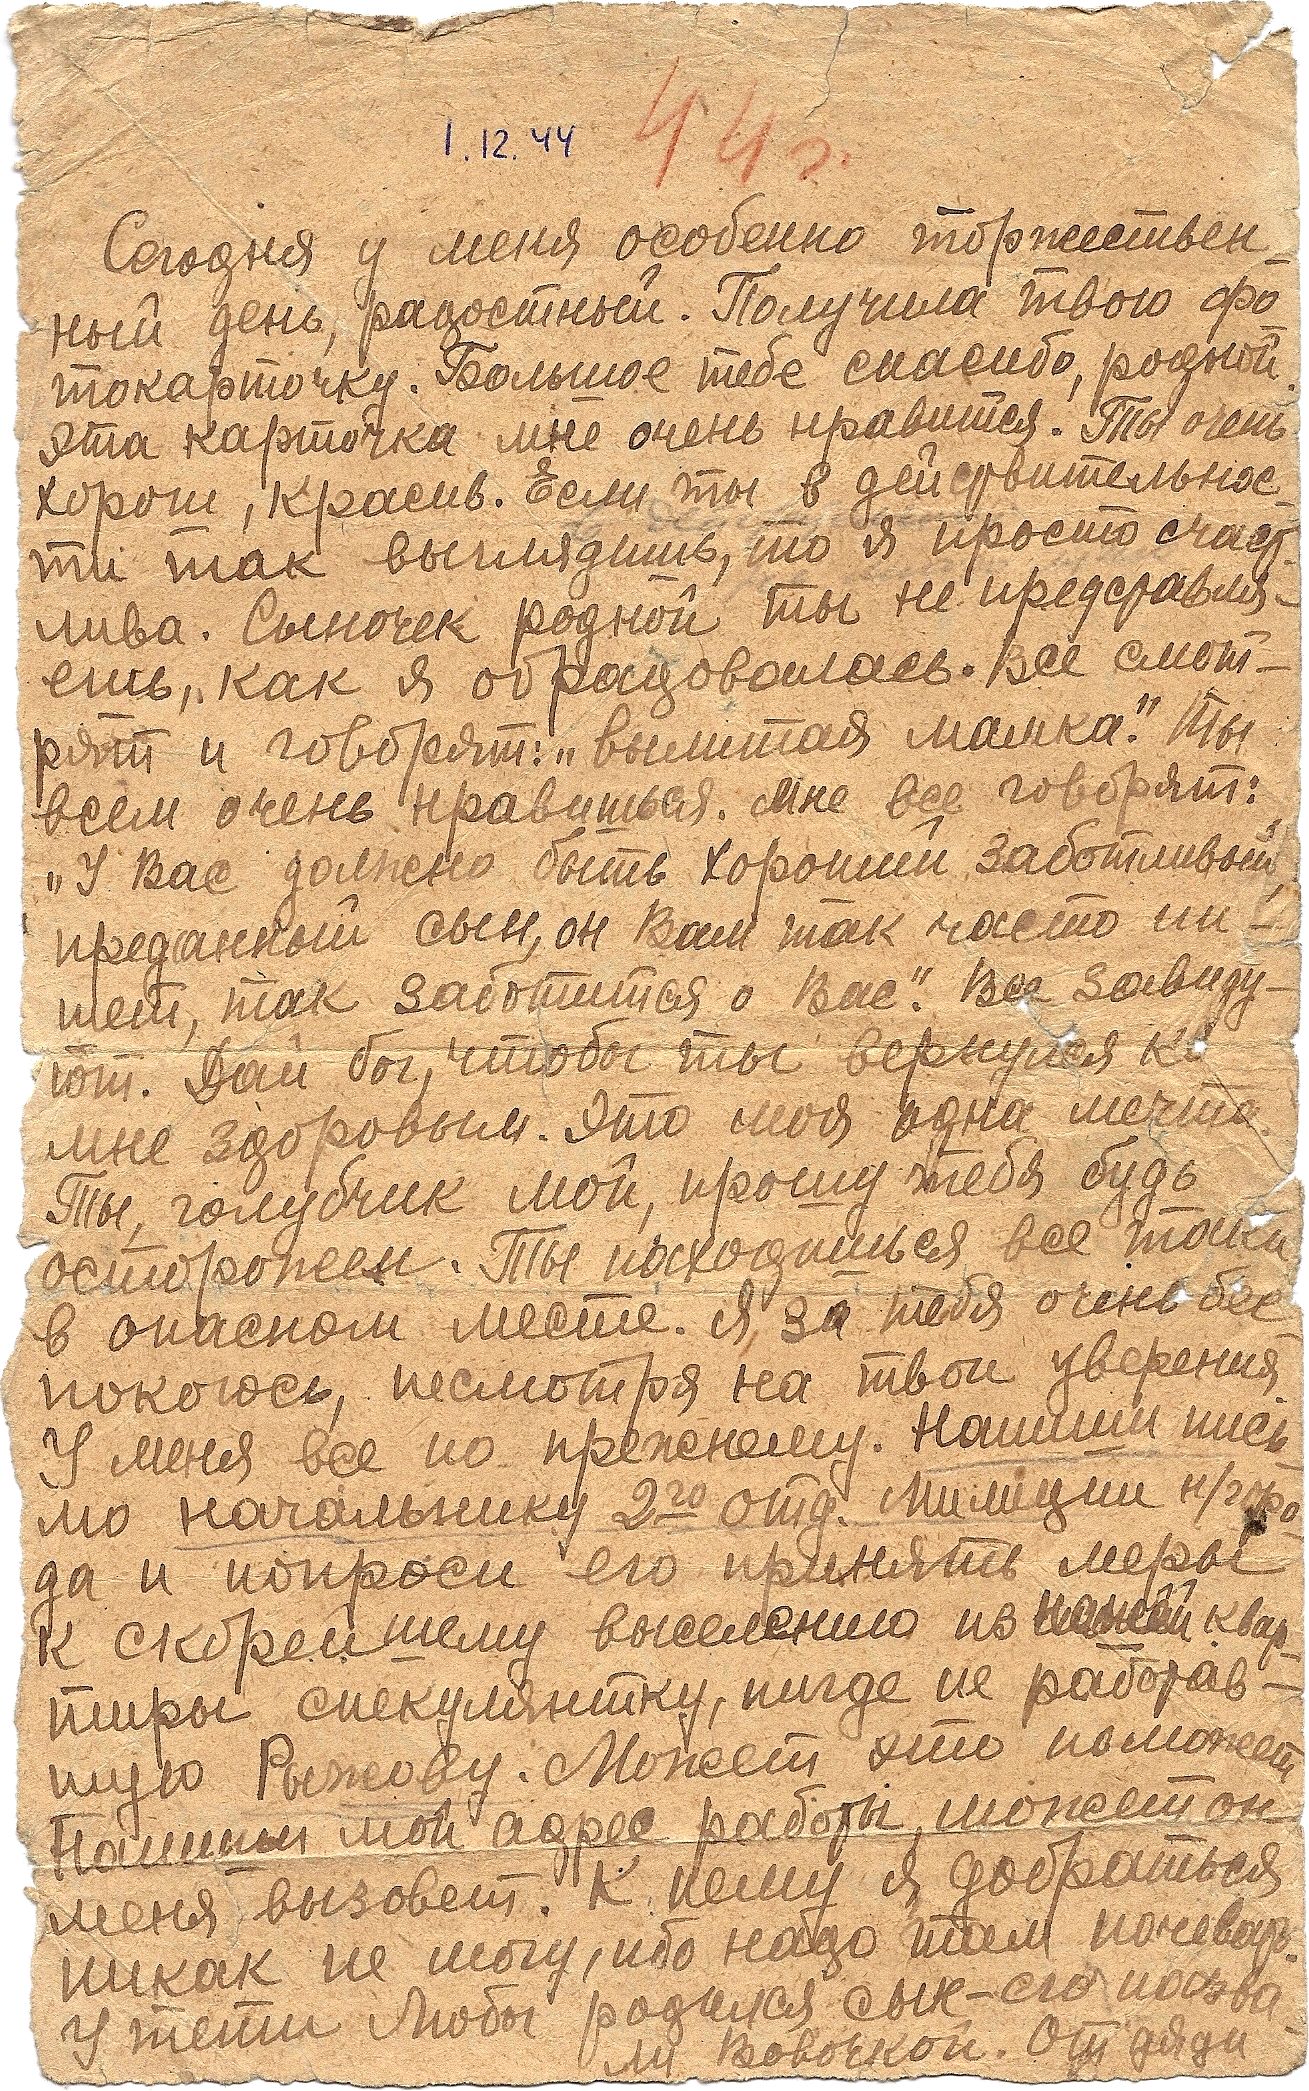 1.12.44 44 г.
Сегодня у меня особенно торжествен
ный день, радостный. Получила твою фо
токарточку. Большое тебе спасибо, родной.
Эта карточка мне очень нравится. Ты очень
хорош, красив. Если ты в действительнос-
ти так выглядишь, то я просто счаст-
лива. Сыночек родной ты не представля-
ешь, как я обрадовалась. Все смот-
рят и говорят: „вылитая мамка". Ты
всем очень нравишься. Мне все говорят:
„У Вас должно быть хороший заботливый,
преданный сын, он Вам так часто пи-
шет, так заботится о Вас". Все завиду-
ют. Дай бог, чтобы ты вернулся ко
мне здоровым. Это моя одна мечта.
Ты, голубчик мой, прошу тебя будь
осторожен. Ты находишься все таки
в опасном месте. Я за тебя очень бес
покоюсь, несмотря на твои уверения.
У меня все по прежнему. Напиши пись
мо начальнику 2го отд. милиции н/горо
да и попроси его принять меры
к скорейшему выселению из нашей квар-
тиры спекулянтку, нигде не работав-
шую Рыжову. Может это поможет
Напиши мой адрес работы, может он
меня вызовет. К нему я добраться
никак не могу, ибо надо там ночевать.
У тети Любы родился сын-его назва
ли Вовочкой. От дяди